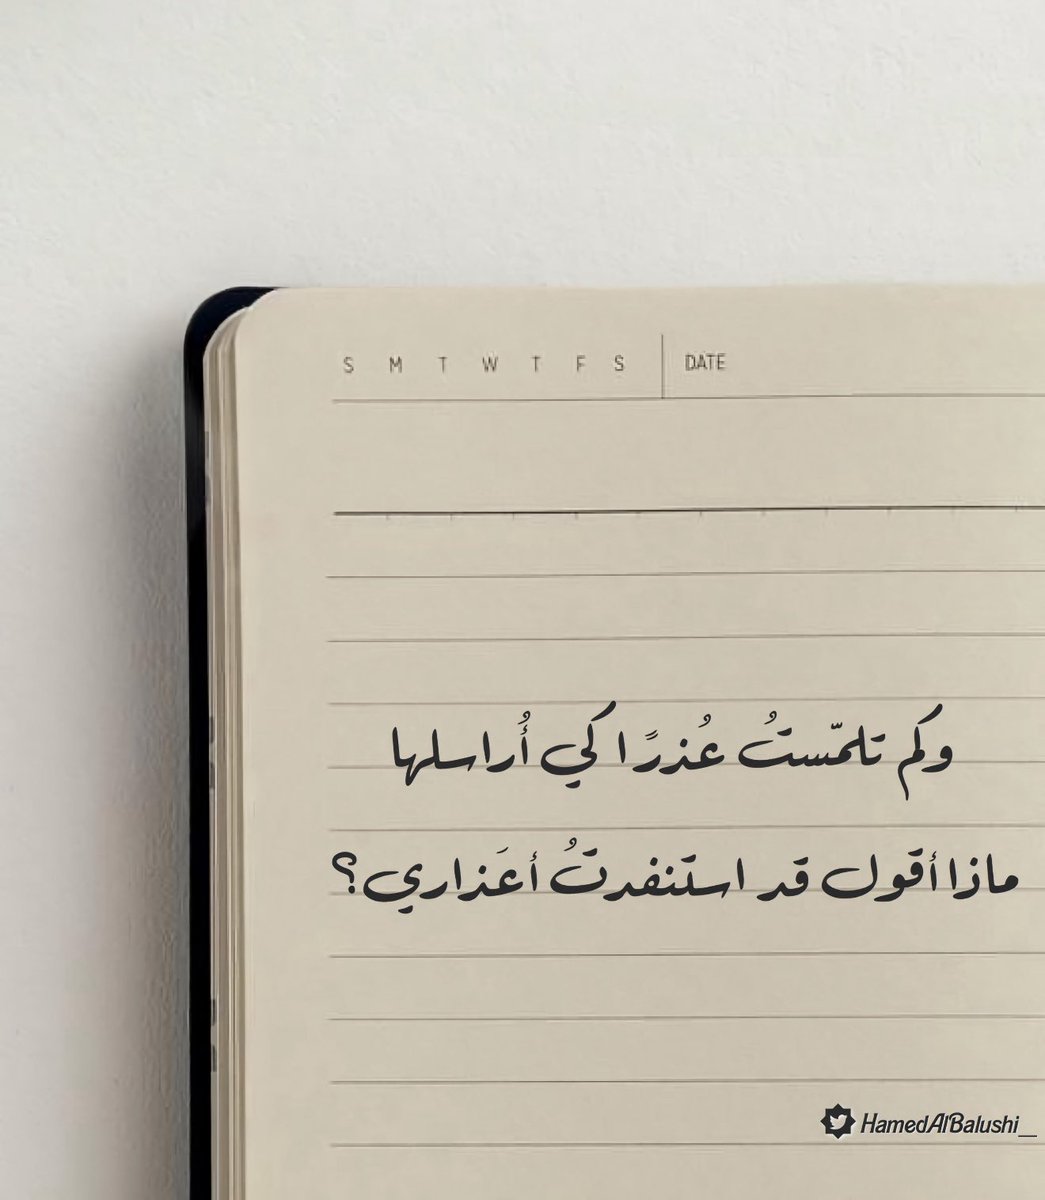 S M T W T F S DATE
وكم تلمّستُ عُذرًا كي أُراسلها
ماذا أقول قد استنفدتُ أعَذاري؟
HamedAl'Balushi__